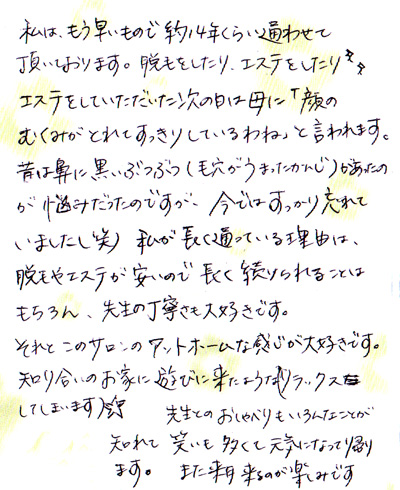 私は、もう早いもので約14年くらい通わせて
頂いております。脱毛をしたり、エステをしたり☆☆
エステをしていただいた次の日は母に「顔の
むくみがとれてすっきりしているわね」と言われます。
昔は鼻に黒いぶつぶつ(毛穴がうまったかんじ)があったの
が悩みだったのですが、今ではすっかり忘れて
いました(笑) 私が長く通っている理由は、
脱毛やエステが安いので長く続けられることは
もちろん、先生の丁寧さも大好きです。
それとこのサロンのアットホームな感じが大好きです。
知り合いのお家に遊びに来たような(リラックス
してしまいます)☆ 先生とのおしゃべりもいろんなことが
知れて笑いも多くて元気になって帰り
ます。 また来月来るのが楽しみです